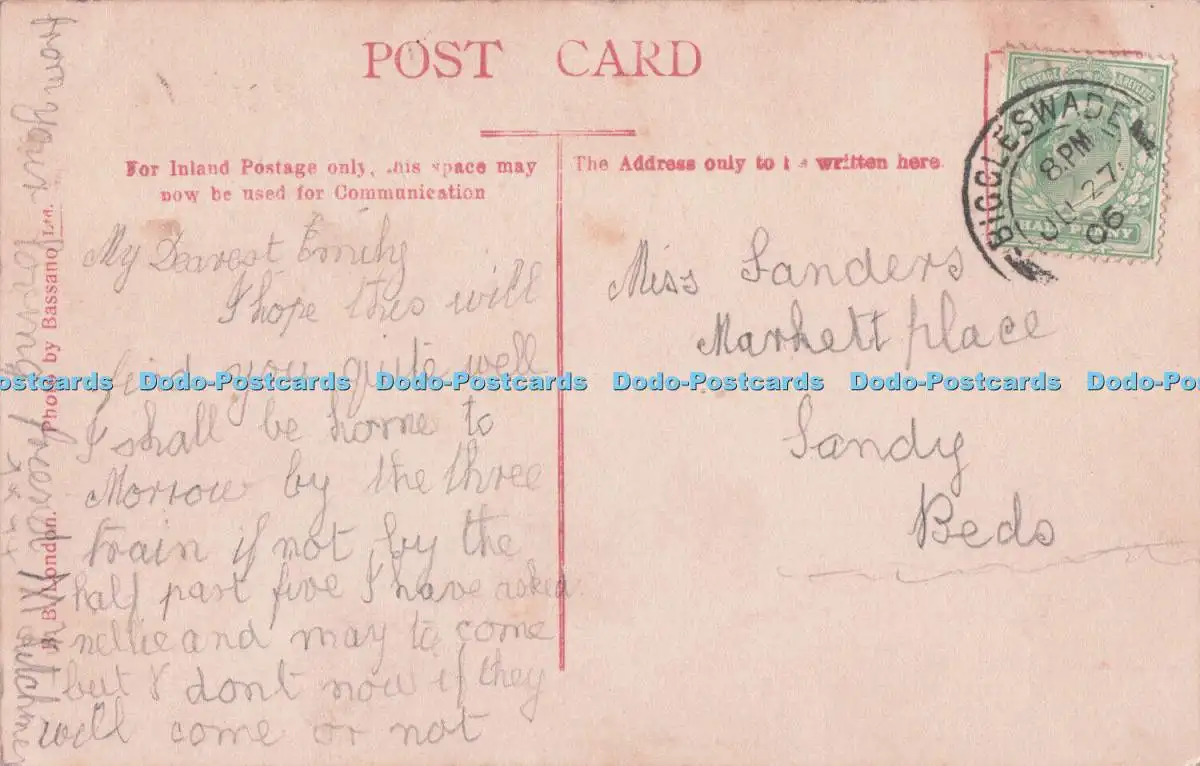 POST CARD
For Inland Postage only, this space may
now be used for Communication
The Address only to be written here.
POSTAGE & REVENUE
HALF PENNY
BIGGLESWADE
8. PM
JUL 27
06
My Dearest Emily
I hope this will
find you quite well
I shall be home to
Morrow by the three
train if not by the
half past five I have asked
nellie and may to come
but I dont now if they
will come or not
from your loving friend
x x x x
Photo by Bassano Ltd.
B. London.
Miss Sanders
Markett place
Sandy
Beds
Dodo-Postcards Dodo-Postcards Dodo-Postcards Dodo-Postcards Dodo-Postcards Dodo-Postcards